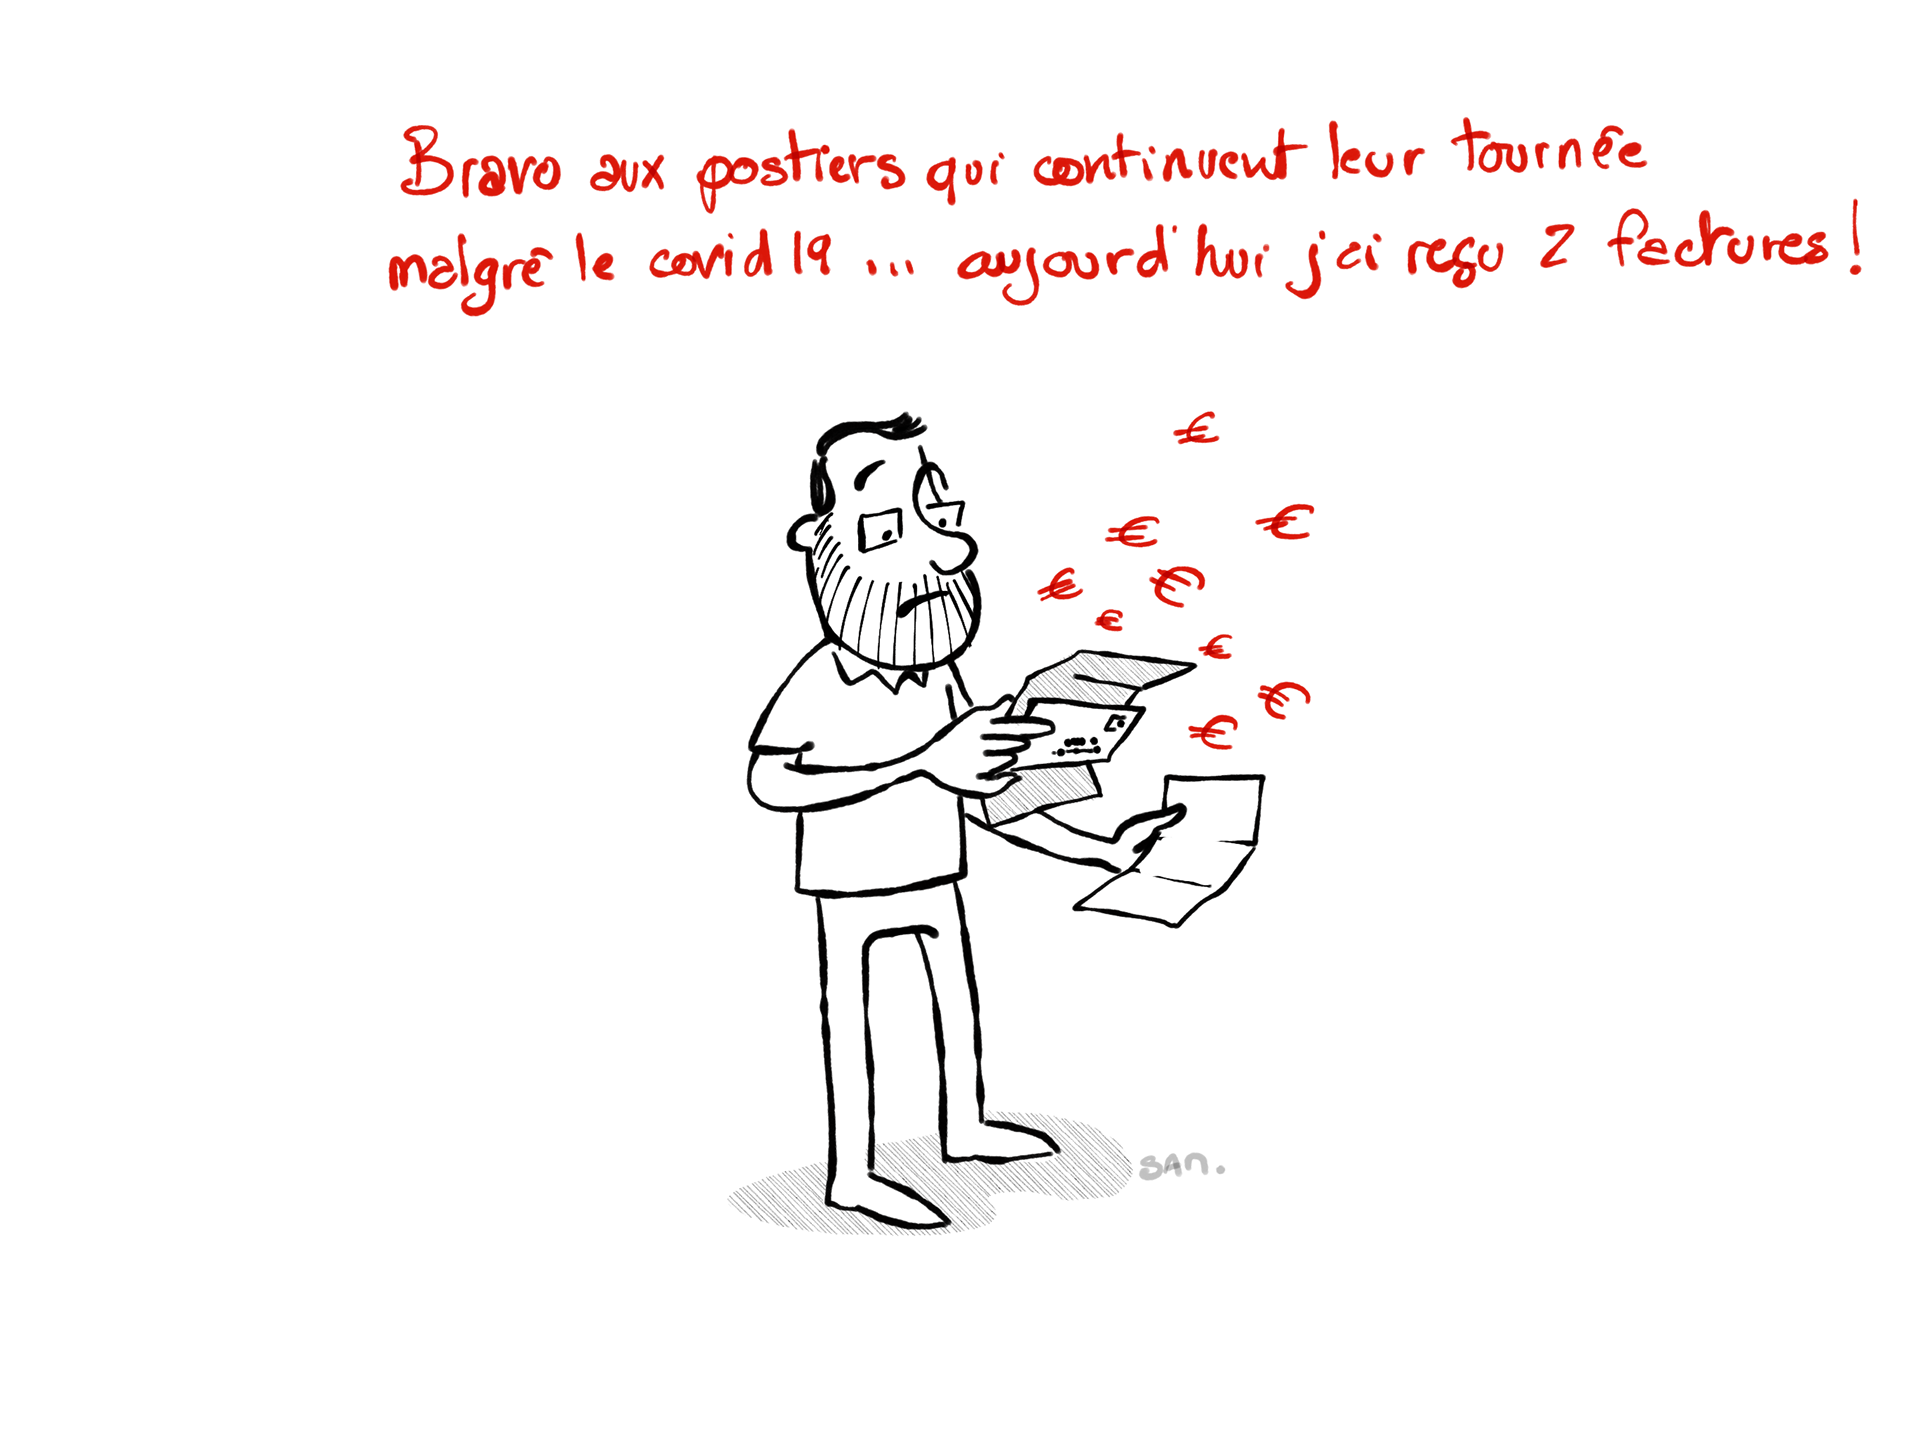 Bravo aux postiers qui continuent leur tournée
malgré le covid19 ... aujourd'hui j'ai reçu 2 factures !
€
€ €
€ €
€
€
€
€
SAN.